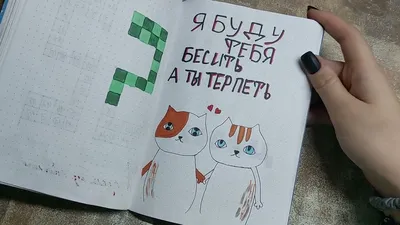 Я БУДУ
ТЕБЯ
БЕСИТЬ
А ТЫ ТЕРПЕТЬ